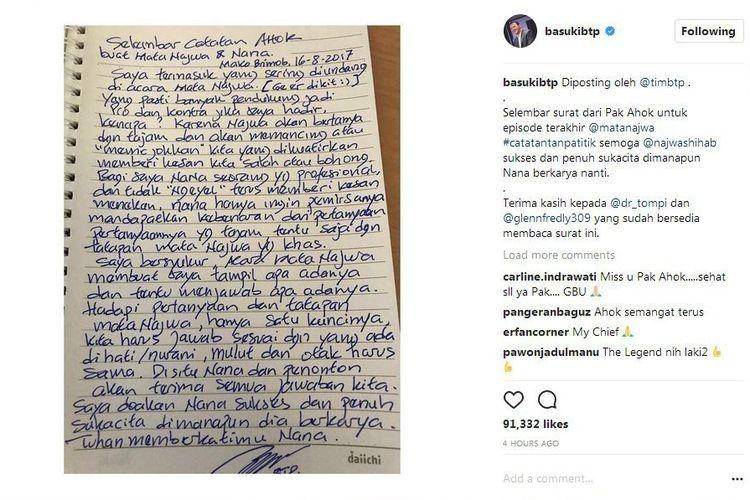 Selembar Catatan Ahok
buat Mata Najwa & Nana.
Mako Brimob, 16-8-2017
Saya termasuk yang sering diundang
di acara Mata Najwa. [Ge er dikit :)]
Yang pasti banyak pendukung jadi
pro dan kontra jika saya hadir.
Kenapa? Karena Najwa akan bertanya
dgn tajam dan akan memancing atau
"memojokkan" kita yang dikuatirkan
memberi kesan kita salah atau bohong.
Bagi saya Nana seorang yg profesional,
dan tidak "ngeyel" terus memberi kesan
menekan, Nana hanya ingin pemirsanya
mendapatkan kebenaran dari pertanyaan
pertanyaannya yg tajam tentu saja dgn
tatapan mata Najwa yg khas.
Saya bersyukur, acara Mata Najwa
membuat saya tampil apa adanya
dan tentu menjawab apa adanya.
Hadapi pertanyaan dan tatapan
mata Najwa, hanya satu kuncinya,
kita harus jawab sesuai dgn yang ada
di hati/nurani, mulut dan otak harus
sama. Disitu Nana dan penonton
akan terima semua jawaban kita.
Saya doakan Nana sukses dan penuh
sukacita dimanapun dia berkarya.
Tuhan memberkatimu Nana.
BTP.
daiichi
basukibtp
Following
basukibtp Diposting oleh @timbtp .
.
Selembar surat dari Pak Ahok untuk
episode terakhir @matanajwa
#catatantanpatitik semoga @najwashihab
sukses dan penuh sukacita dimanapun
Nana berkarya nanti.
.
Terima kasih kepada @dr_tompi dan
@glennfredly309 yang sudah bersedia
membaca surat ini.
Load more comments
carline.indrawati Miss u Pak Ahok.....sehat
sll ya Pak.... GBU 🙏
pangeranbaguz Ahok semangat terus
erfancorner My Chief 🙏
pawonjadulmanu The Legend nih laki2 👍
👍
91,332 likes
4 HOURS AGO
Add a comment...